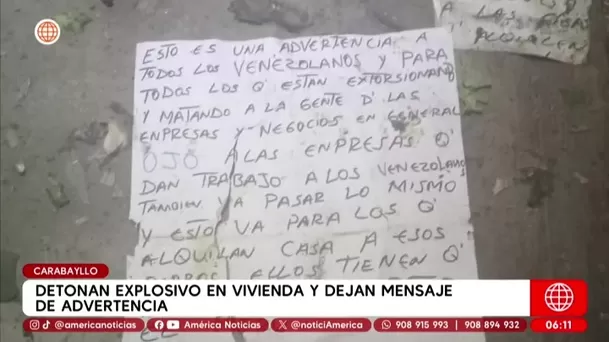 A LAS
ALQUILEN
ESTO ES UNA ADVERTENCIA A
TODOS LOS VENEZOLANOS Y PARA
TODOS LOS Q' ESTAN EXTORSIONANDO
Y MATANDO A LA GENTE D' LAS
ENPRESAS Y NEGOCIOS EN GENERAL
OJO A LAS ENPRESAS Q'
DAN TRABAJO A LOS VENEZOLANO
TAMBIEN VA PASAR LO MISMO
Y ESTO VA PARA LOS Q'
ALQUILAN CASA A ESOS
ELLOS TIENEN Q'
EL
CARABAYLLO
DETONAN EXPLOSIVO EN VIVIENDA Y DEJAN MENSAJE
DE ADVERTENCIA
@americanoticias América Noticias @noticiAmerica 908 915 993 908 894 932 06:11